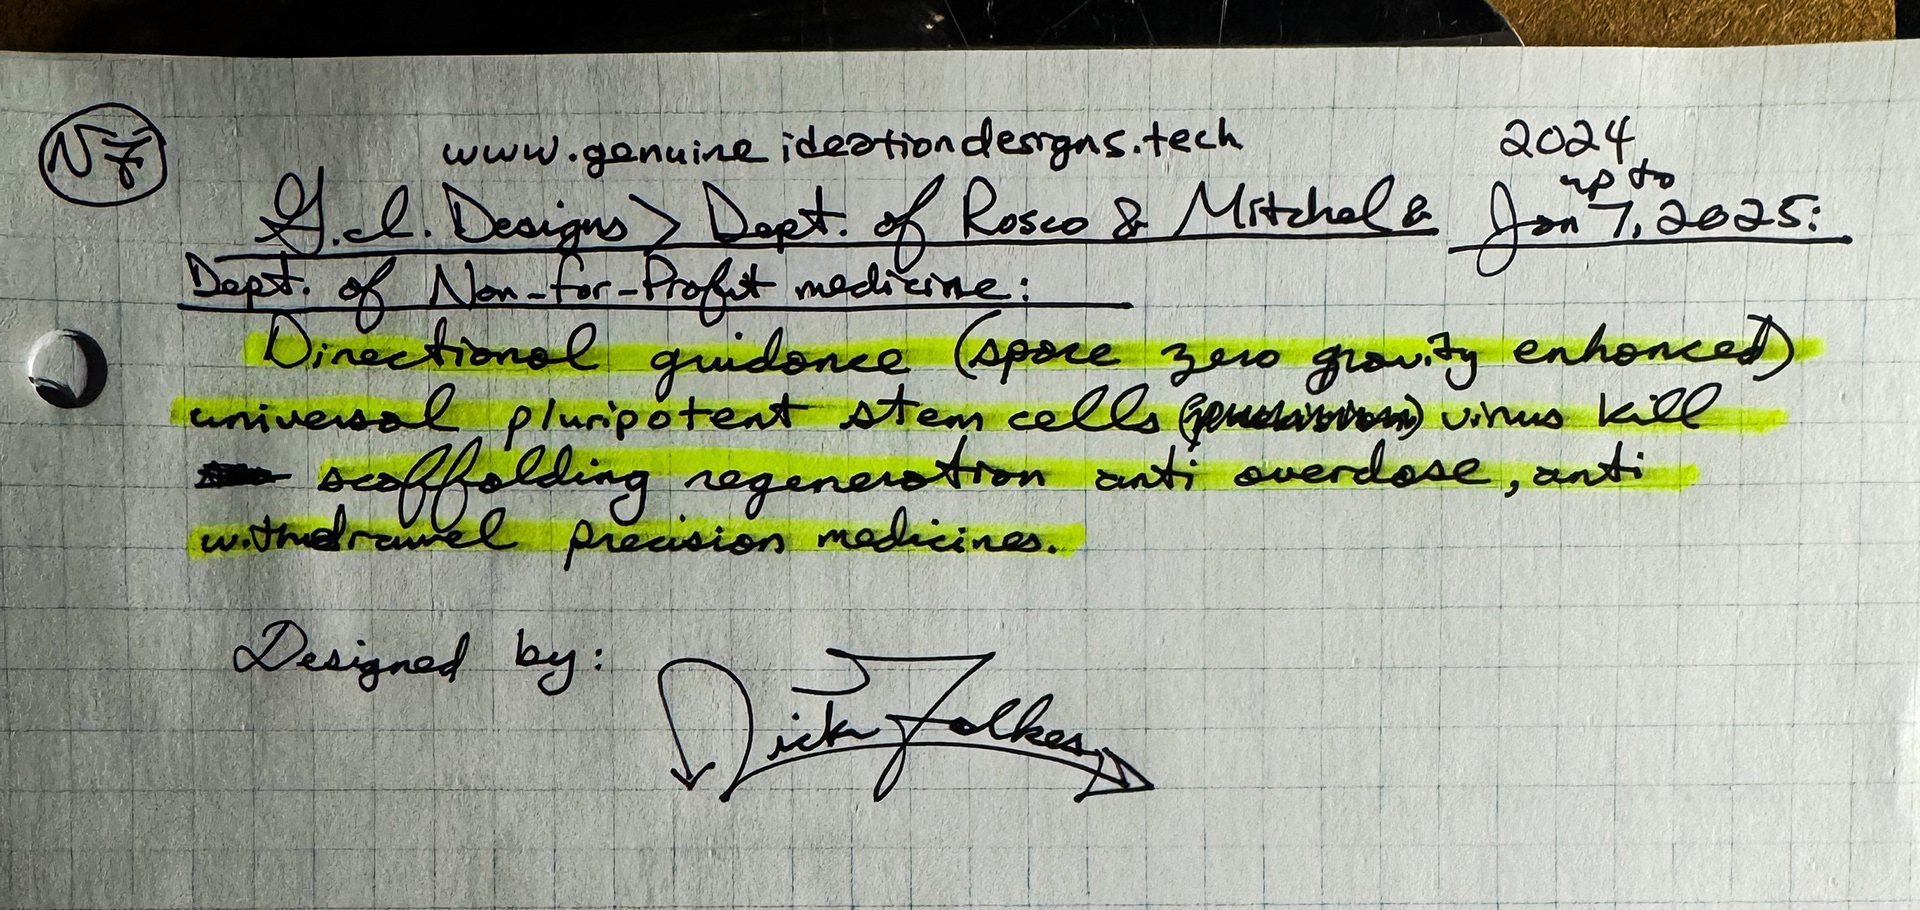 N7
www.genuineideationdesigns.tech
2024
up to
G.I. Designs > Dept. of Rosco & Mitchel & Jan 7, 2025:
Dept. of Non-for-Profit medicine:
Directional guidance (space zero gravity enhanced)
universal pluripotent stem cells virus kill
scaffolding regeneration anti overdose, anti
withdrawel precision medicines.
Designed by:
Dick Folkes